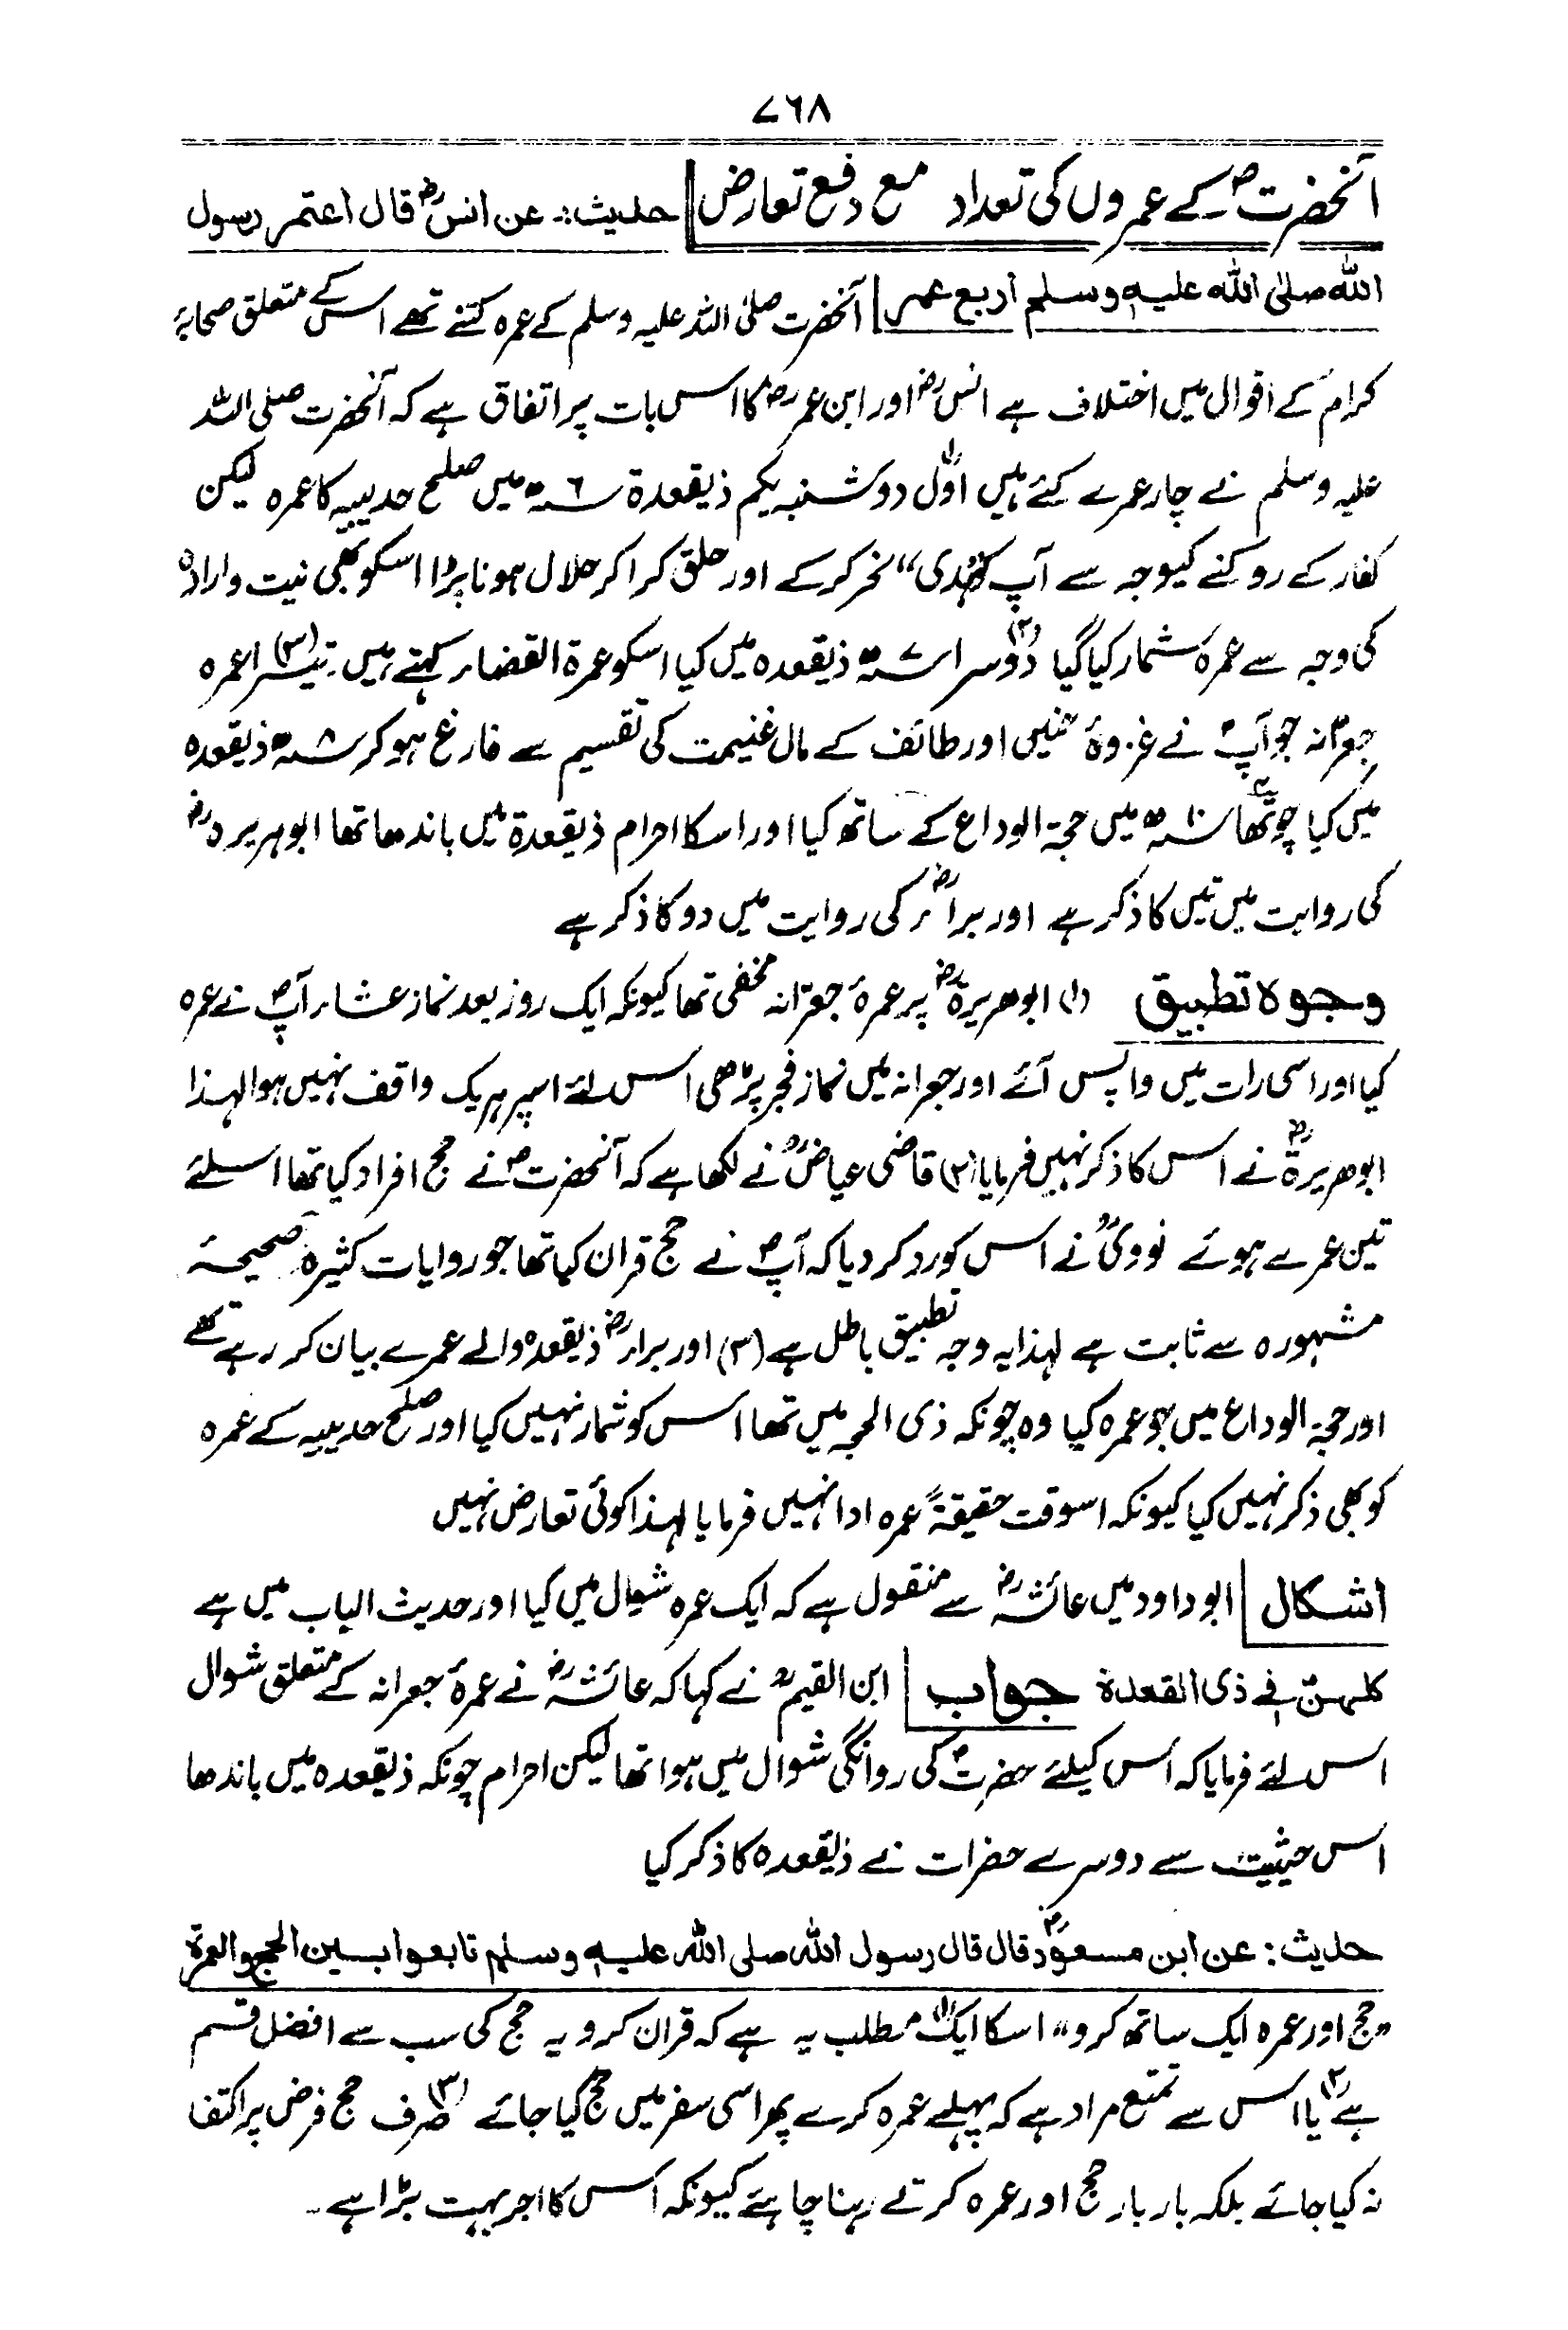 ۷۶۸
آنحضرت ؐ کے عمروں کی تعداد مع دفع تعارض حدیث:۔ عن انس ؓ قال اعتمر رسول
اللہ صلی اللہ علیہ وسلم اربع عمر آنحضرت صلی اللہ علیہ وسلم کے عمرہ کتنے تھے اس کے متعلق صحابۂ
کرام کے اقوال میں اختلاف ہے انس ؓ اور ابن عمر ؓ کا اس بات پر اتفاق ہے کہ آنحضرت صلی اللہ
علیہ وسلم نے چار عمرے کئے ہیں (۱) اول دوشنبہ یکم ذیقعدۃ سنہ ۶ھ میں صلح حدیبیہ کا عمرہ لیکن
کفار کے روکنے کیوجہ سے آپ کو ہدی“ نحر کرکے اور حلق کرا کر حلال ہونا پڑا اسکو بھی نیت وارادہ
کی وجہ سے عمرہ شمار کیا گیا (۲) دوسرا سنہ ۷ھ ذیقعدہ میں کیا اسکو عمرۃ القضاء کہتے ہیں۔ (۳) تیسرا عمرہ
جعرانہ جو آپ ؐ نے غزوۂ حنین اور طائف کے مال غنیمت کی تقسیم سے فارغ ہو کر سنہ ۸ھ ذیقعدہ
میں کیا (۴) چوتھا سنہ ۱۰ھ میں حجۃ الوداع کے ساتھ کیا اور اسکا احرام ذیقعدۃ میں باندھا تھا ابوہریرہ ؓ
کی روایت میں تین کا ذکر ہے اور براء ؓ کی روایت میں دو کا ذکر ہے
وجوہ تطبیق (۱) ابوھریرۃ ؓ پر عمرۂ جعرانہ مخفی تھا کیونکہ ایک روز بعد نماز عشاء آپ ؐ نے عمرہ
کیا اور اسی رات میں واپس آئے اور جعرانہ میں نماز فجر پڑھی اس لئے اسپر ہر یک واقف نہیں ہوا لہذا
ابوھریرۃ ؓ نے اس کا ذکر نہیں فرمایا (۲) قاضی عیاض ؒ نے لکھا ہے کہ آنحضرت ؐ نے حج افراد کیا تھا اسلئے
تین عمرے ہوئے نووی ؒ نے اس کو رد کر دیا کہ آپ ؐ نے حج قران کیا تھا جو روایات کثیرہ صحیحۂ
مشہورہ سے ثابت ہے لہذا یہ وجہ تطبیق باطل ہے (۳) اور براء ؓ ذیقعدہ والے عمرے بیان کر رہے تھے
اور حجۃ الوداع میں جو عمرہ کیا وہ چونکہ ذی الحجہ میں تھا اس کو شمار نہیں کیا اور صلح حدیبیہ کے عمرہ
کو بھی ذکر نہیں کیا کیونکہ اسوقت حقیقۃً عمرہ ادا نہیں فرمایا لہذا کوئی تعارض نہیں
اشکال ابوداود میں عائشہ ؓ سے منقول ہے کہ ایک عمرہ شوال میں کیا اور حدیث الباب میں ہے
کلہن فی ذی القعدۃ جواب ابن القیم ؒ نے کہا کہ عائشہ ؓ نے عمرۂ جعرانہ کے متعلق شوال
اس لئے فرمایا کہ اس کیلئے حضرت ؐ کی روانگی شوال میں ہوا تھا لیکن احرام چونکہ ذیقعدہ میں باندھا
اس حیثیت سے دوسرے حضرات نے ذیقعدہ کا ذکر کیا
حدیث: عن ابن مسعود ؓ قال قال رسول اللہ صلی اللہ علیہ وسلم تابعوا بین الحج والعمرۃ
”حج اور عمرہ ایک ساتھ کرو“ اسکا (۱) ایک مطلب یہ ہے کہ قران کرو یہ حج کی سب سے افضل قسم
ہے (۲) یا اس سے تمتع مراد ہے کہ پہلے عمرہ کرے پھر اسی سفر میں حج کیا جائے (۳) صرف حج فرض پر اکتفا
نہ کیا جائے بلکہ بار بار حج اور عمرہ کرتے رہنا چاہئے کیونکہ اس کا اجر بہت بڑا ہے۔